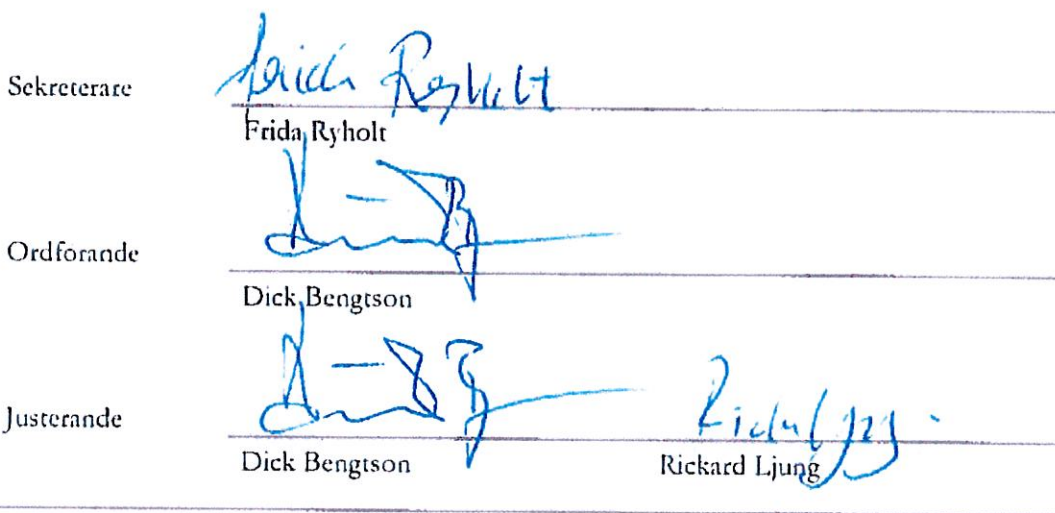 Sekreterare
Frida Ryholt
Ordförande
Dick Bengtson
Justerande
Dick Bengtson Rickard Ljung